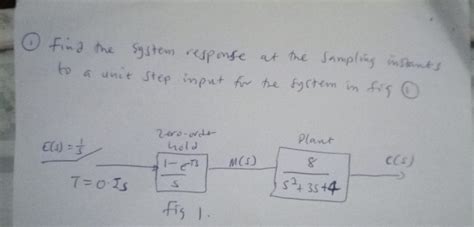 ① Find the system response at the sampling instants
to a unit step input for the system in fig ①
Zero-order
hold
Plant
E(s) = 1/s
1 - e^-Ts
s
M(s)
8
s² + 3s + 4
C(s)
T = 0.1s
fig 1.